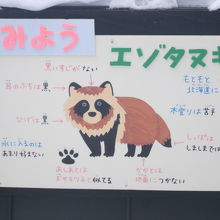 みよう
エゾタヌキ
黒いすじがない
もともと
北海道に
耳のふちは黒
木登りは苦手
ひげは黒
しっぽは
しましまでは
冬に入るのは
あまり好まない
あしあとは
犬やキツネと似てる
かかとは
地面につかない